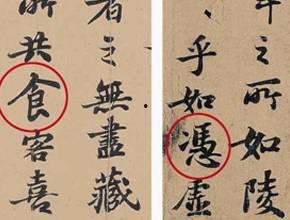 者之無盡藏
所共食客喜
之所如陵
乎如憑虛